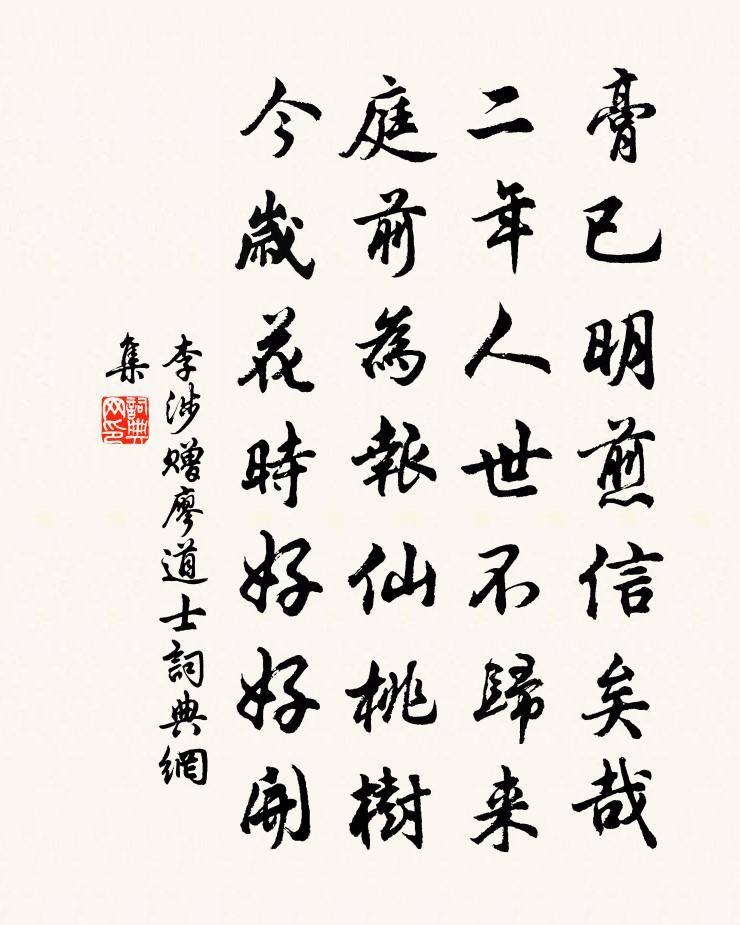 膏已明煎信矣哉
二年人世不歸来
庭前為報仙桃樹
今歲花時好好開
李涉赠廖道士詞典網
集
詞典
网印